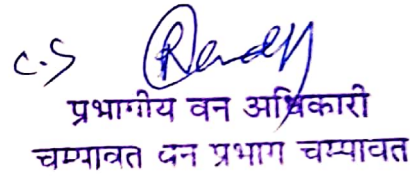 C.S
प्रभागीय वन अधिकारी
चम्पावत वन प्रभाग चम्पावत